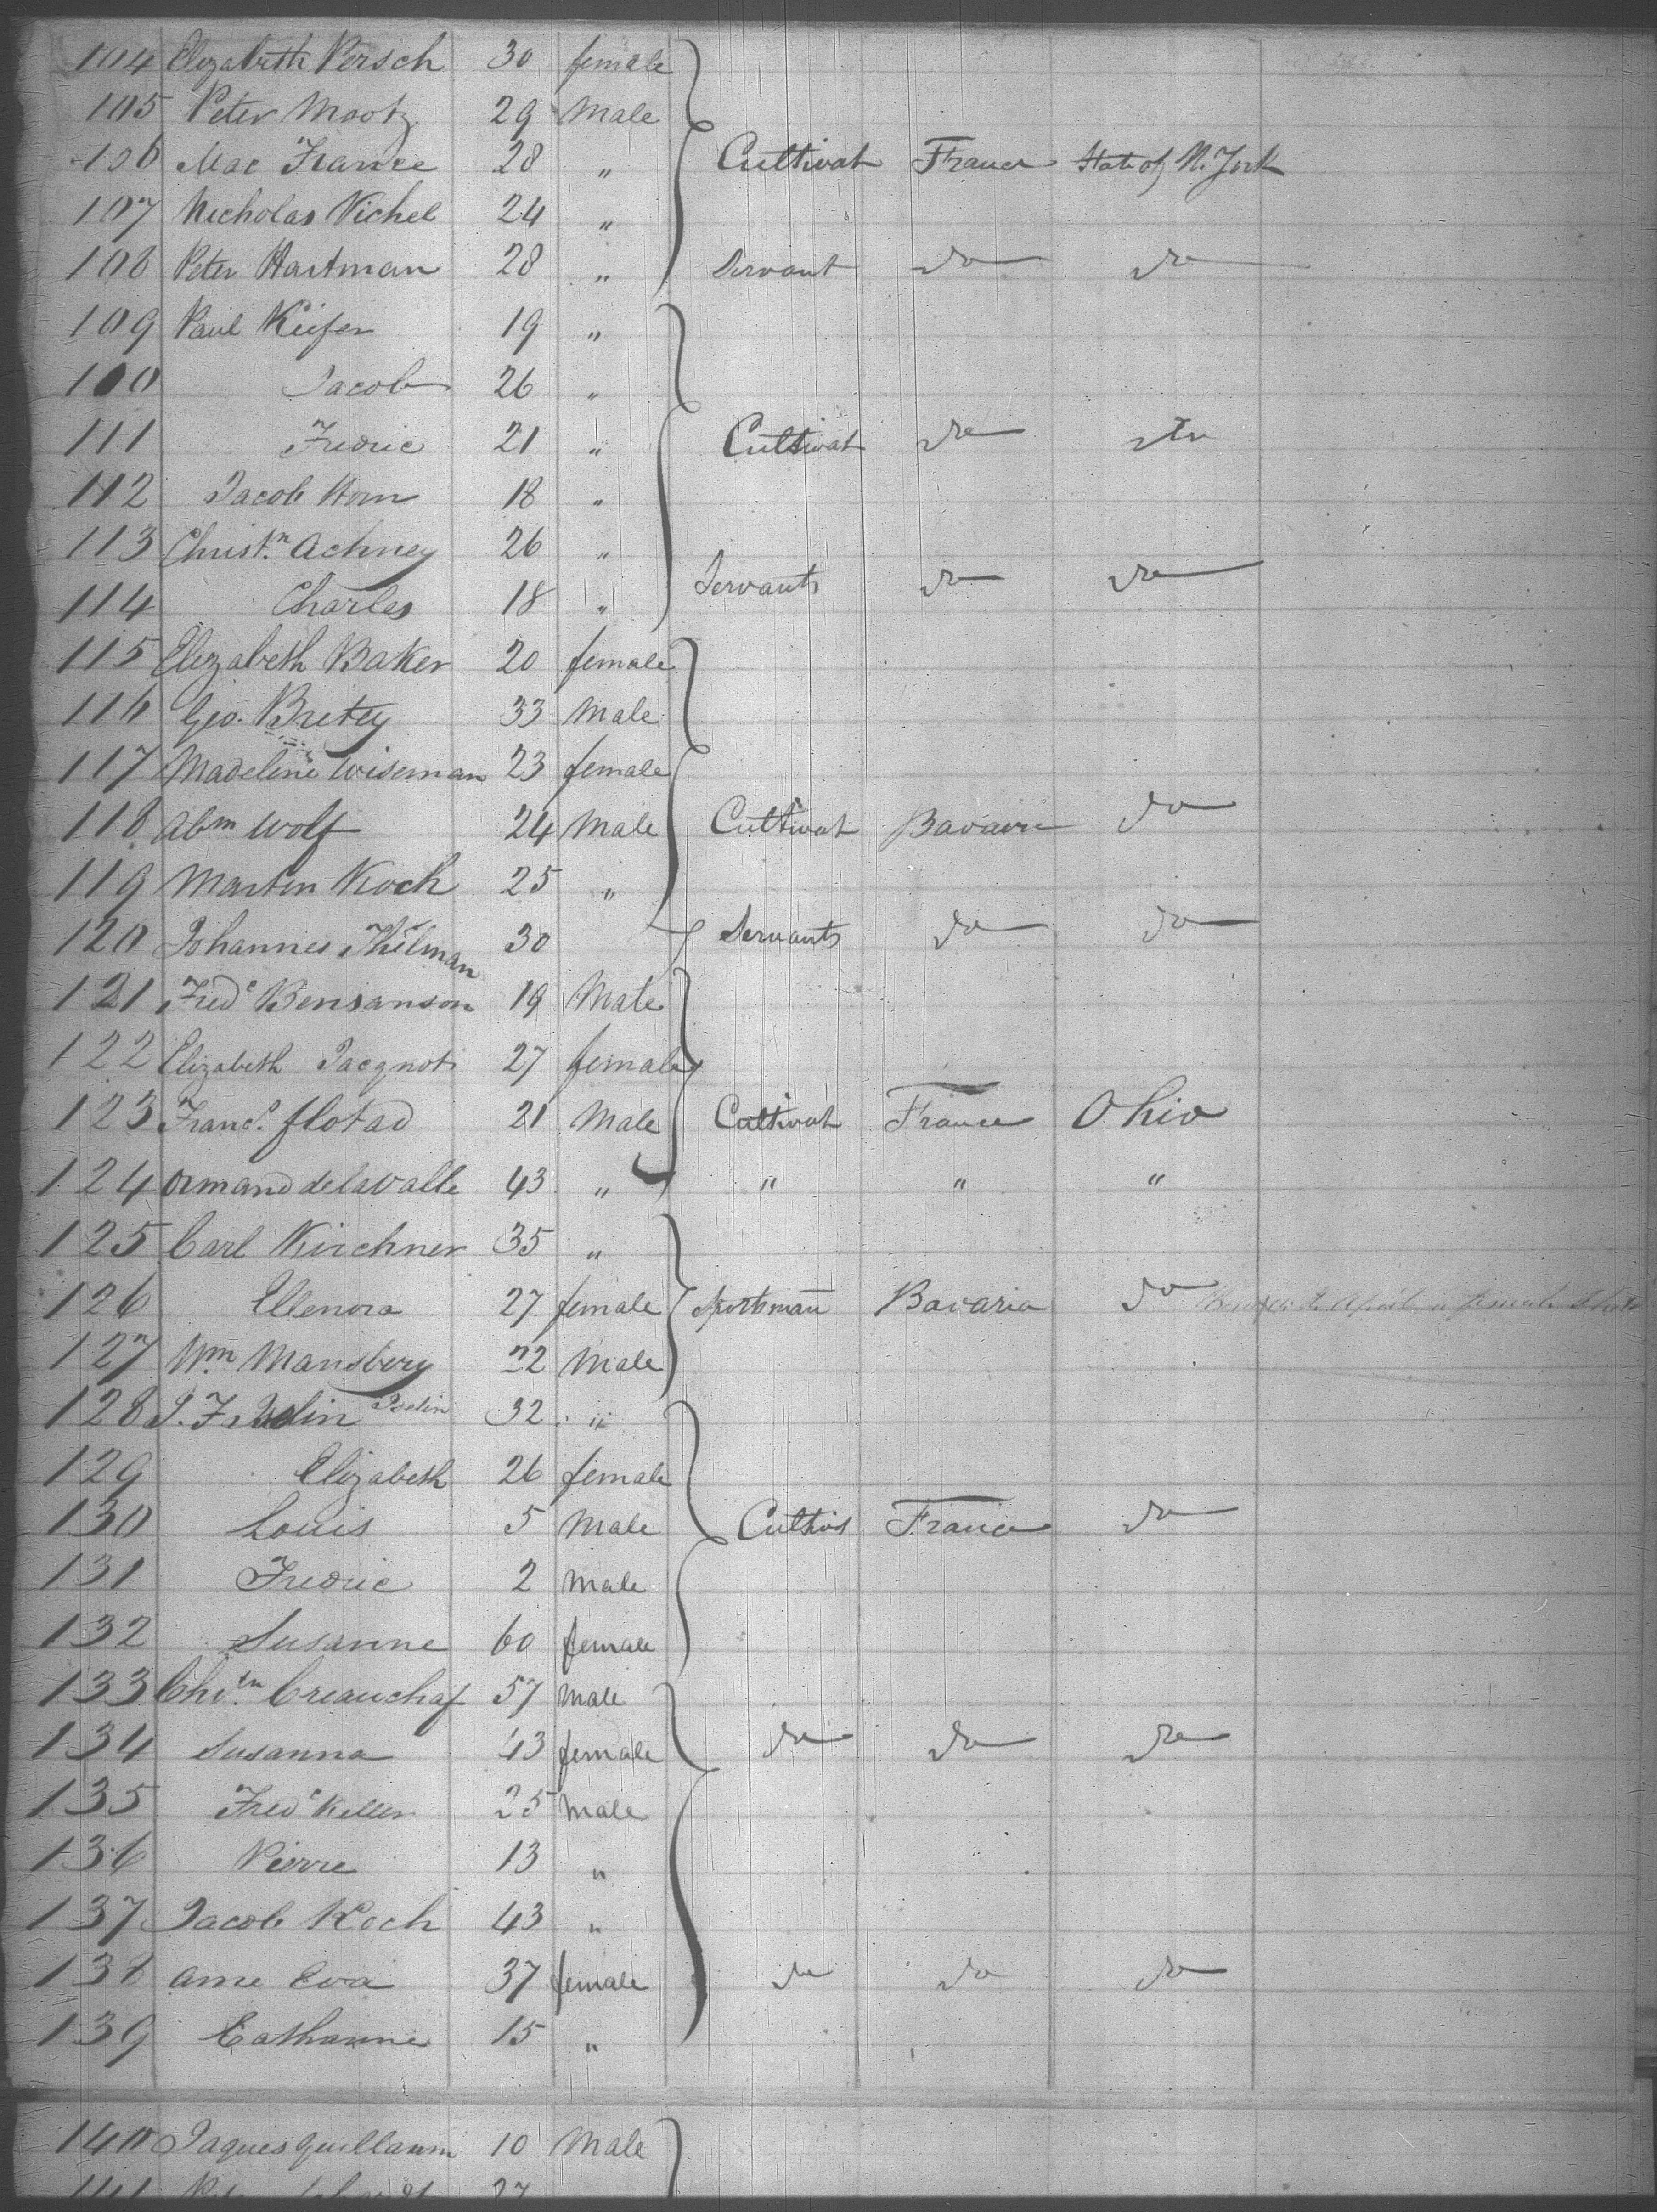 104 Elizabeth Persch 30 female
105 Peter Mootz 29 Male
106 Mac France 28 " Cultivat France State of N. York
107 Nicholas Nichel 24 "
108 Peter Hartman 28 " Servant do do
109 Paul Kiefer 19 "
100 Jacob 26 "
111 Fredric 21 " Cultivat do do
112 Jacob Horn 18 "
113 Christn Achney 26 "
114 Charles 18 " Servants do do
115 Elizabeth Baker 20 female
116 Geo. Bretey 33 Male
117 Madeline Wiseman 23 female
118 Abm Wolf 24 Male Cultivat Bavaria do
119 Martin Koch 25 "
120 Johannes Thilman 30 Servants do do
121 Fredc Bensanson 19 Male
122 Elizabeth Jacqnot 27 female
123 Francs flotad 21 Male Cultivat France Ohio
124 Ormand delavalle 43 " " " "
125 Carl Kirchner 35 "
126 Ellenora 27 female Sportsman Bavaria do
127 Wm Mansbery 22 Male
128 J. F. Iselin 32 "
129 Elizabeth 26 female
130 Louis 5 Male Cultivs France do
131 Fredric 2 male
132 Susanne 60 female
133 Chrtn Creauchaf 57 male
134 Susanna 43 female do do do
135 Fredc Keller 25 male
136 Pierre 13 "
137 Jacob Koch 43 "
138 Ame Eva 37 female do do do
139 Catharine 15 "
140 Jaques guillaum 10 Male
141 27